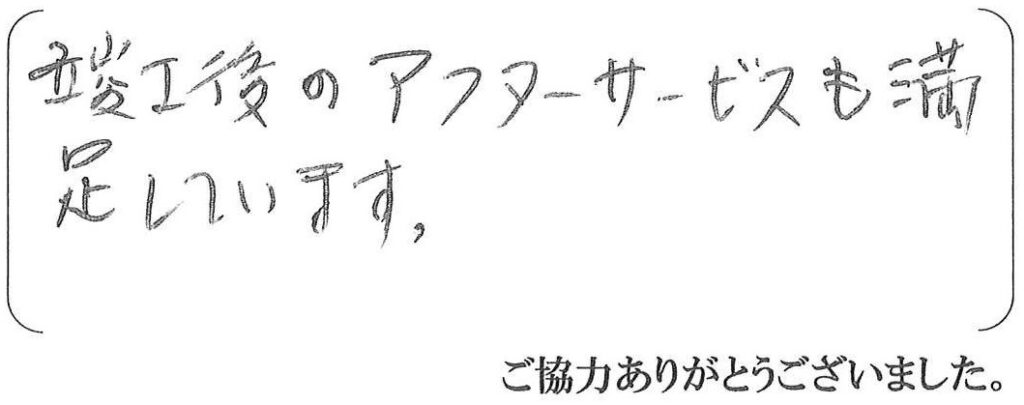 竣工後のアフターサービスも満
足しています,
ご協力ありがとうございました。